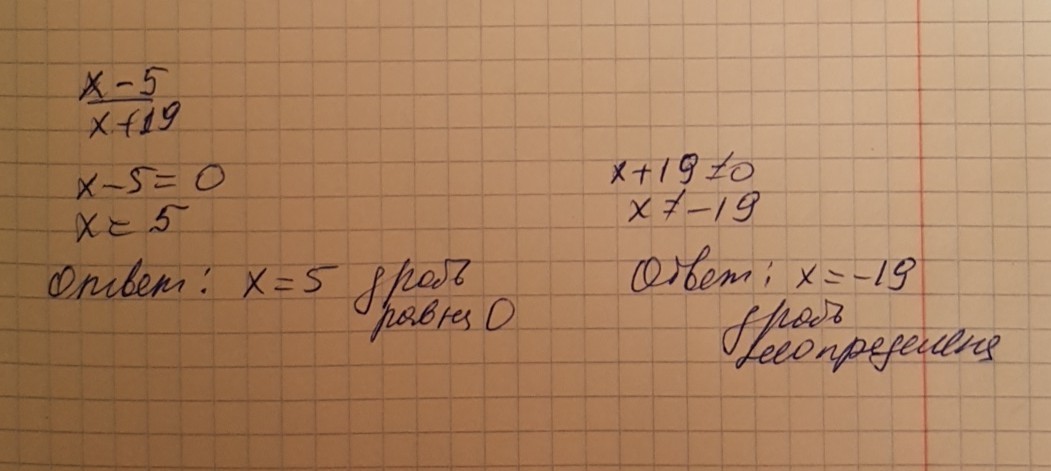 x-5
x+19
x-5=0
x=5
Ответ: x=5 дробь
равна 0
x+19≠0
x≠-19
Ответ: x=-19
дробь
неопределена